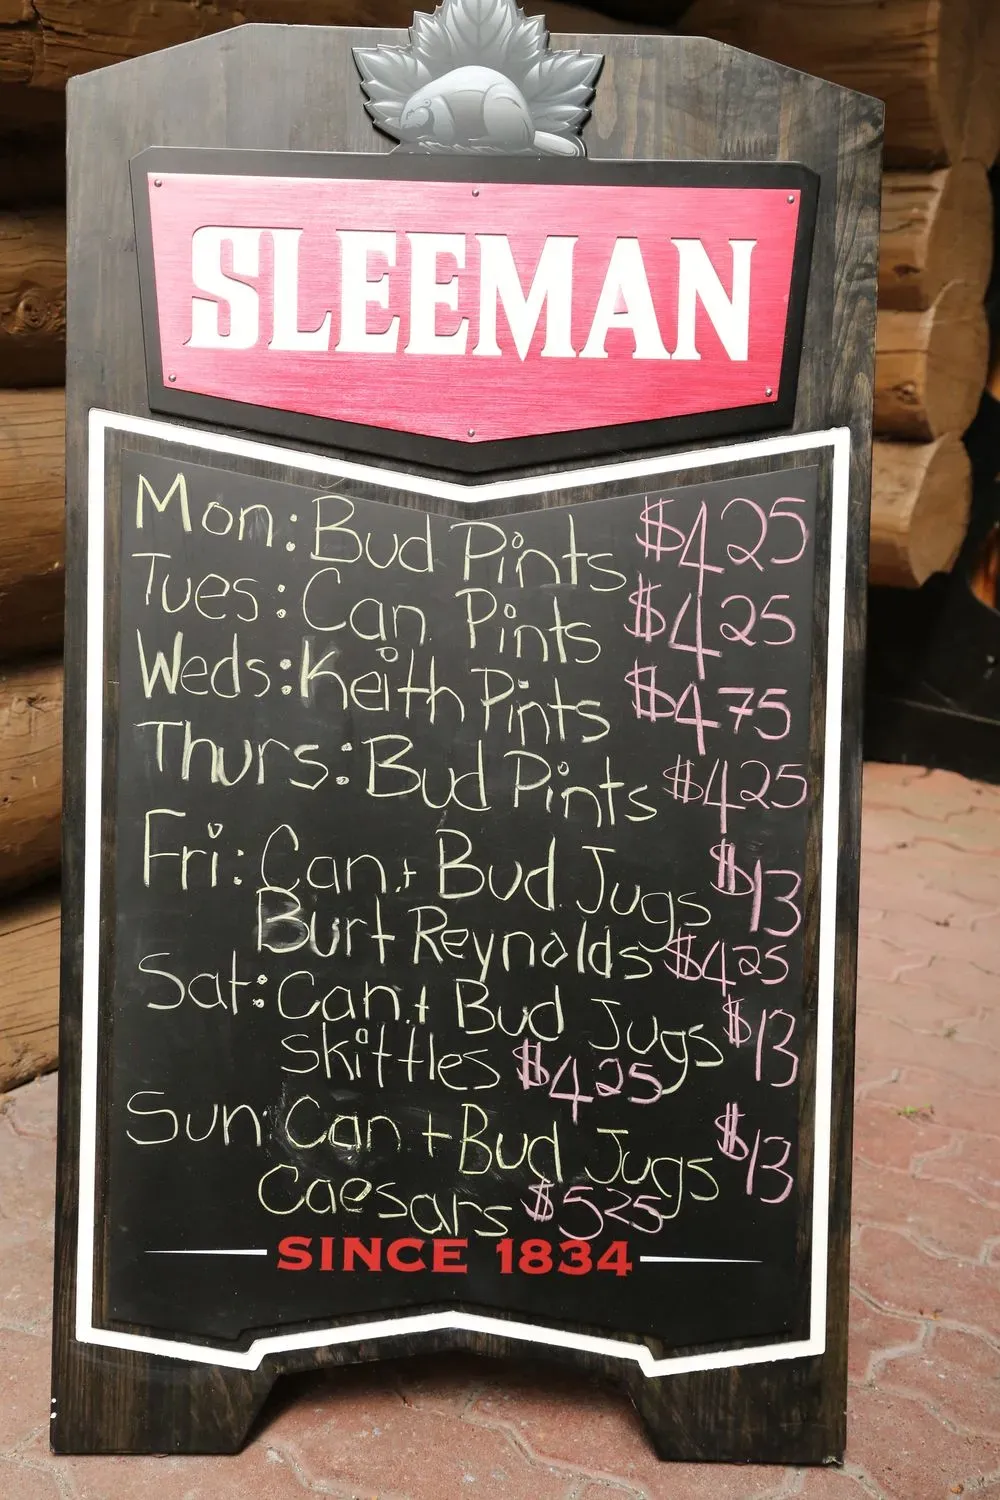 SLEEMAN
Mon: Bud Pints $4.25
Tues: Can Pints $4.25
Weds: Keith Pints $4.75
Thurs: Bud Pints $4.25
Fri: Can + Bud Jugs $13
Burt Reynolds $4.25
Sat: Can + Bud Jugs $13
skittles $4.25
Sun: Can + Bud Jugs $13
Caesars $5.25
SINCE 1834